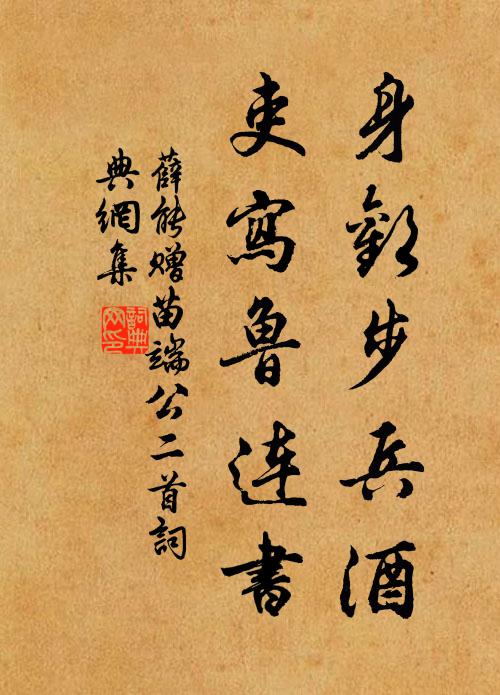 身勸步兵酒
吏寫魯連書
薛能贈苗端公二首詞
典網集
詞典
网印